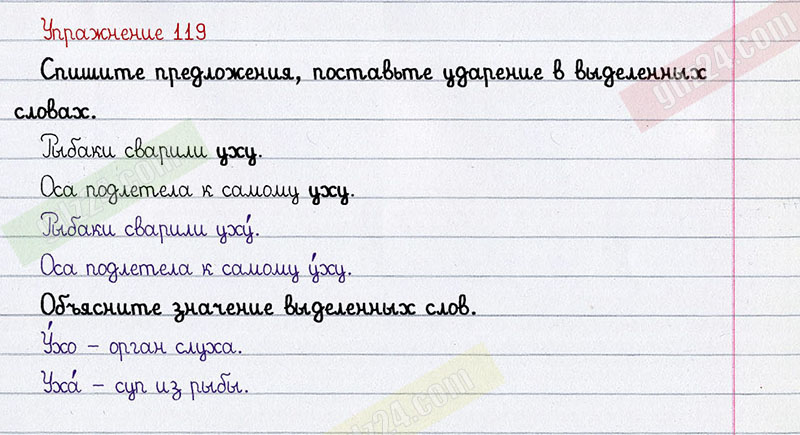 Упражнение 119
Спишите предложения, поставьте ударение в выделенных
словах.
Рыбаки сварили уху.
Оса подлетела к самому уху.
Рыбаки сварили уху́.
Оса подлетела к самому у́ху.
Объясните значение выделенных слов.
У́хо – орган слуха.
Уха́ – суп из рыбы.
gdz24.com
gdz24.com
gdz24.com